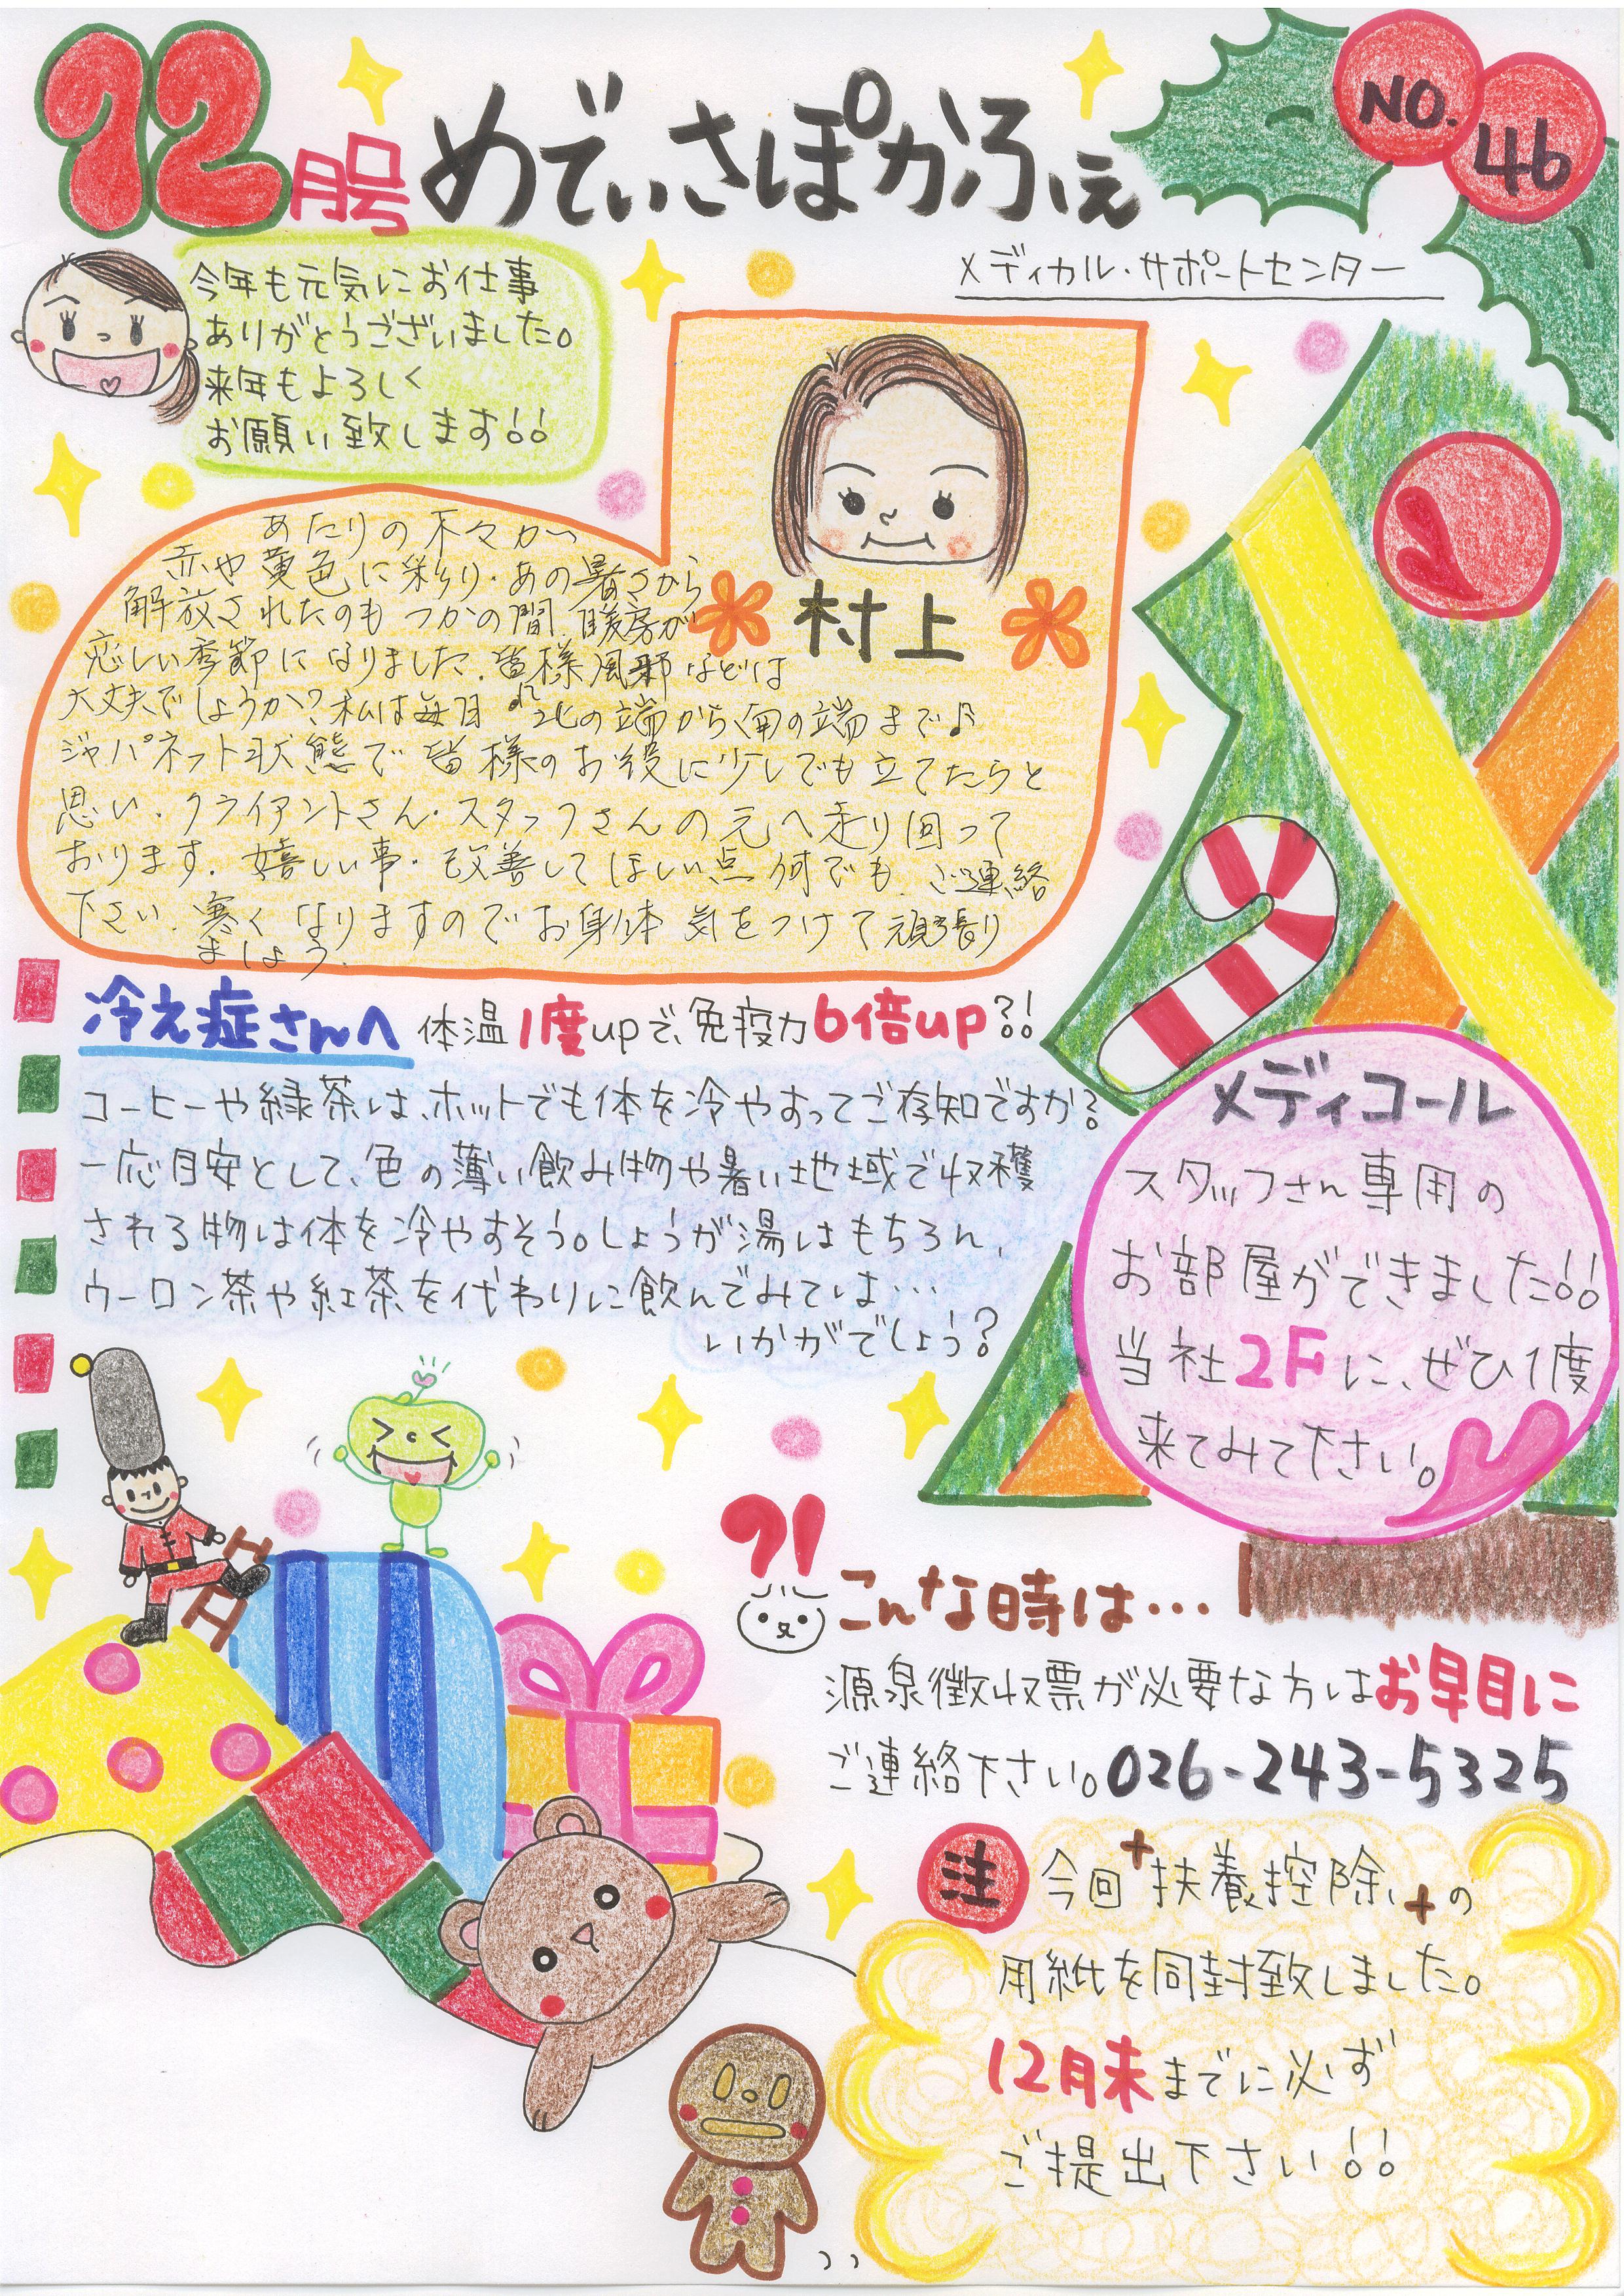 12月号 めでぃさぽかふぇ
NO.46
メディカル・サポートセンター
今年も元気にお仕事
ありがとうございました。
来年もよろしく
お願い致します!!
村上
あたりの木々が
赤や黄色に彩り、あの暑さから
解放されたのもつかの間、暖房が
恋しい季節になりました。皆様風邪などは
大丈夫でしょうか?私は毎日♪北の端から南の端まで♪
ジャパネット状態で皆様のお役に少しでも立てたらと
思い、クライアントさん・スタッフさんの元へ走り回って
おります。嬉しい事・改善してほしい点何でも、ご連絡
下さい。寒くなりますのでお身体気をつけて頑張り
ましょう。
冷え症さんへ 体温1度upで、免疫力6倍up?!
コーヒーや緑茶は、ホットでも体を冷やすってご存知ですか?
一応目安として、色の薄い飲み物や暑い地域で収穫
される物は体を冷やすそう。しょうが湯はもちろん、
ウーロン茶や紅茶を代わりに飲んでみては…
いかがでしょう?
メディコール
スタッフさん専用の
お部屋ができました!!
当社2Fに、ぜひ1度
来てみて下さい。
?!
こんな時は…
源泉徴収票が必要な方はお早目に
ご連絡下さい。026-243-5325
注 今回"扶養控除"の
用紙を同封致しました。
12月末までに必ず
ご提出下さい!!